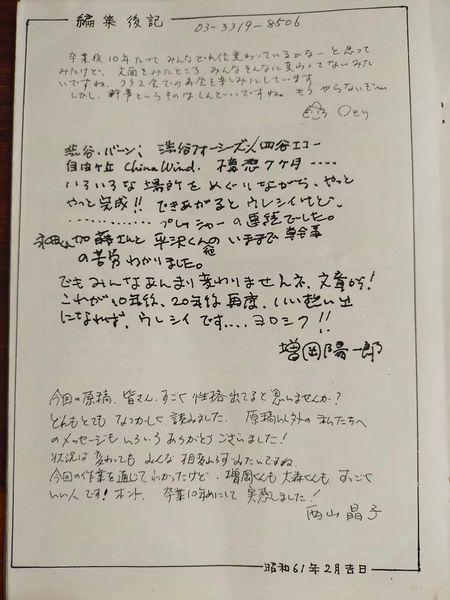 編集後記
03-3319-8506
卒業後10年たって みんなどれ位変わっているかなーと思って
みたけど、文面をみたところ、みんなそんなに変わってないみた
いですね。クラス会での再会を楽しみにしています。
しかし、幹事というものはしんどいですね。もうやらないぞ〜
渋谷・バーン、渋谷フォーシーズン/四谷エコー
自由ヶ丘 China Wind. 構想7ヶ月 ‥‥
いろいろな場所をめぐりながら、やっと
やっと完成!! できあがるとウレシイけど、
‥‥‥‥‥ プレッシャーの連続でした。
和田くん加藤さんと平沢くんの いままで 幹事
の苦労わかりました。
でもみんなあんまり変わりませんネ、文章が!
これが10年後、20年後再度、いい想い出
になれば、ウレシイです‥‥ヨロシク!!
増岡陽一郎
今回の原稿、皆さん、すごく性格出てると思いませんか?
どれもとても なつかしく 読みました。原稿以外の私たちへ
のメッセージもいろいろ ありがとうございました!
状況は変わっても みんな 相変わらずみたいですね
今回の作業を通じてわかったけど、増岡くんも大森くんも すっごく
いい人です! ホント、卒業10年めにして 実感しました!
西山晶子
昭和61年2月吉日